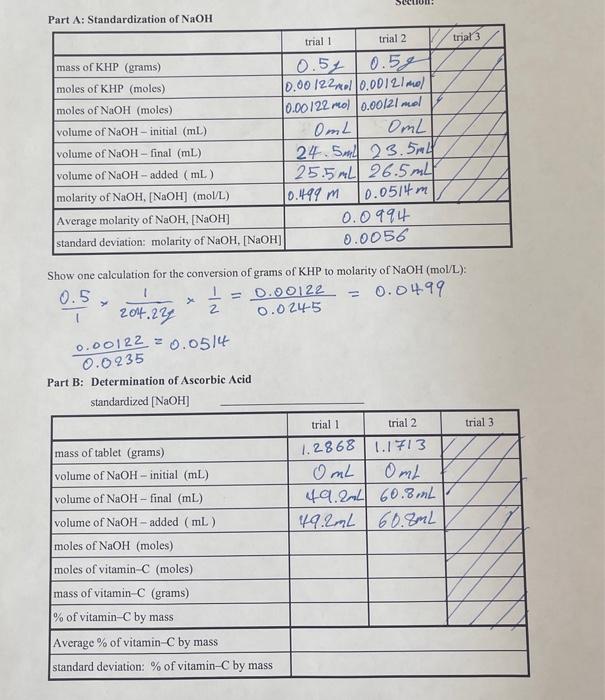 Section:
Part A: Standardization of NaOH
trial 1 trial 2 trial 3
mass of KHP (grams) 0.5g 0.5g
moles of KHP (moles) 0.00122mol 0.00121mol
moles of NaOH (moles) 0.00122mol 0.00121mol
volume of NaOH – initial (mL) 0mL 0mL
volume of NaOH – final (mL) 24.5mL 23.5mL
volume of NaOH – added ( mL ) 25.5mL 26.5mL
molarity of NaOH, [NaOH] (mol/L) 0.499 m 0.0514m
Average molarity of NaOH, [NaOH] 0.0994
standard deviation: molarity of NaOH, [NaOH] 0.0056
Show one calculation for the conversion of grams of KHP to molarity of NaOH (mol/L):
0.5/1 × 1/204.22g × 1/2 = 0.00122/0.0245 = 0.0499
0.00122/0.0235 = 0.0514
Part B: Determination of Ascorbic Acid
standardized [NaOH]
trial 1 trial 2 trial 3
mass of tablet (grams) 1.2868 1.1713
volume of NaOH – initial (mL) 0mL 0mL
volume of NaOH – final (mL) 49.2mL 60.8mL
volume of NaOH – added ( mL ) 49.2mL 60.8mL
moles of NaOH (moles)
moles of vitamin–C (moles)
mass of vitamin–C (grams)
% of vitamin–C by mass
Average % of vitamin–C by mass
standard deviation: % of vitamin–C by mass